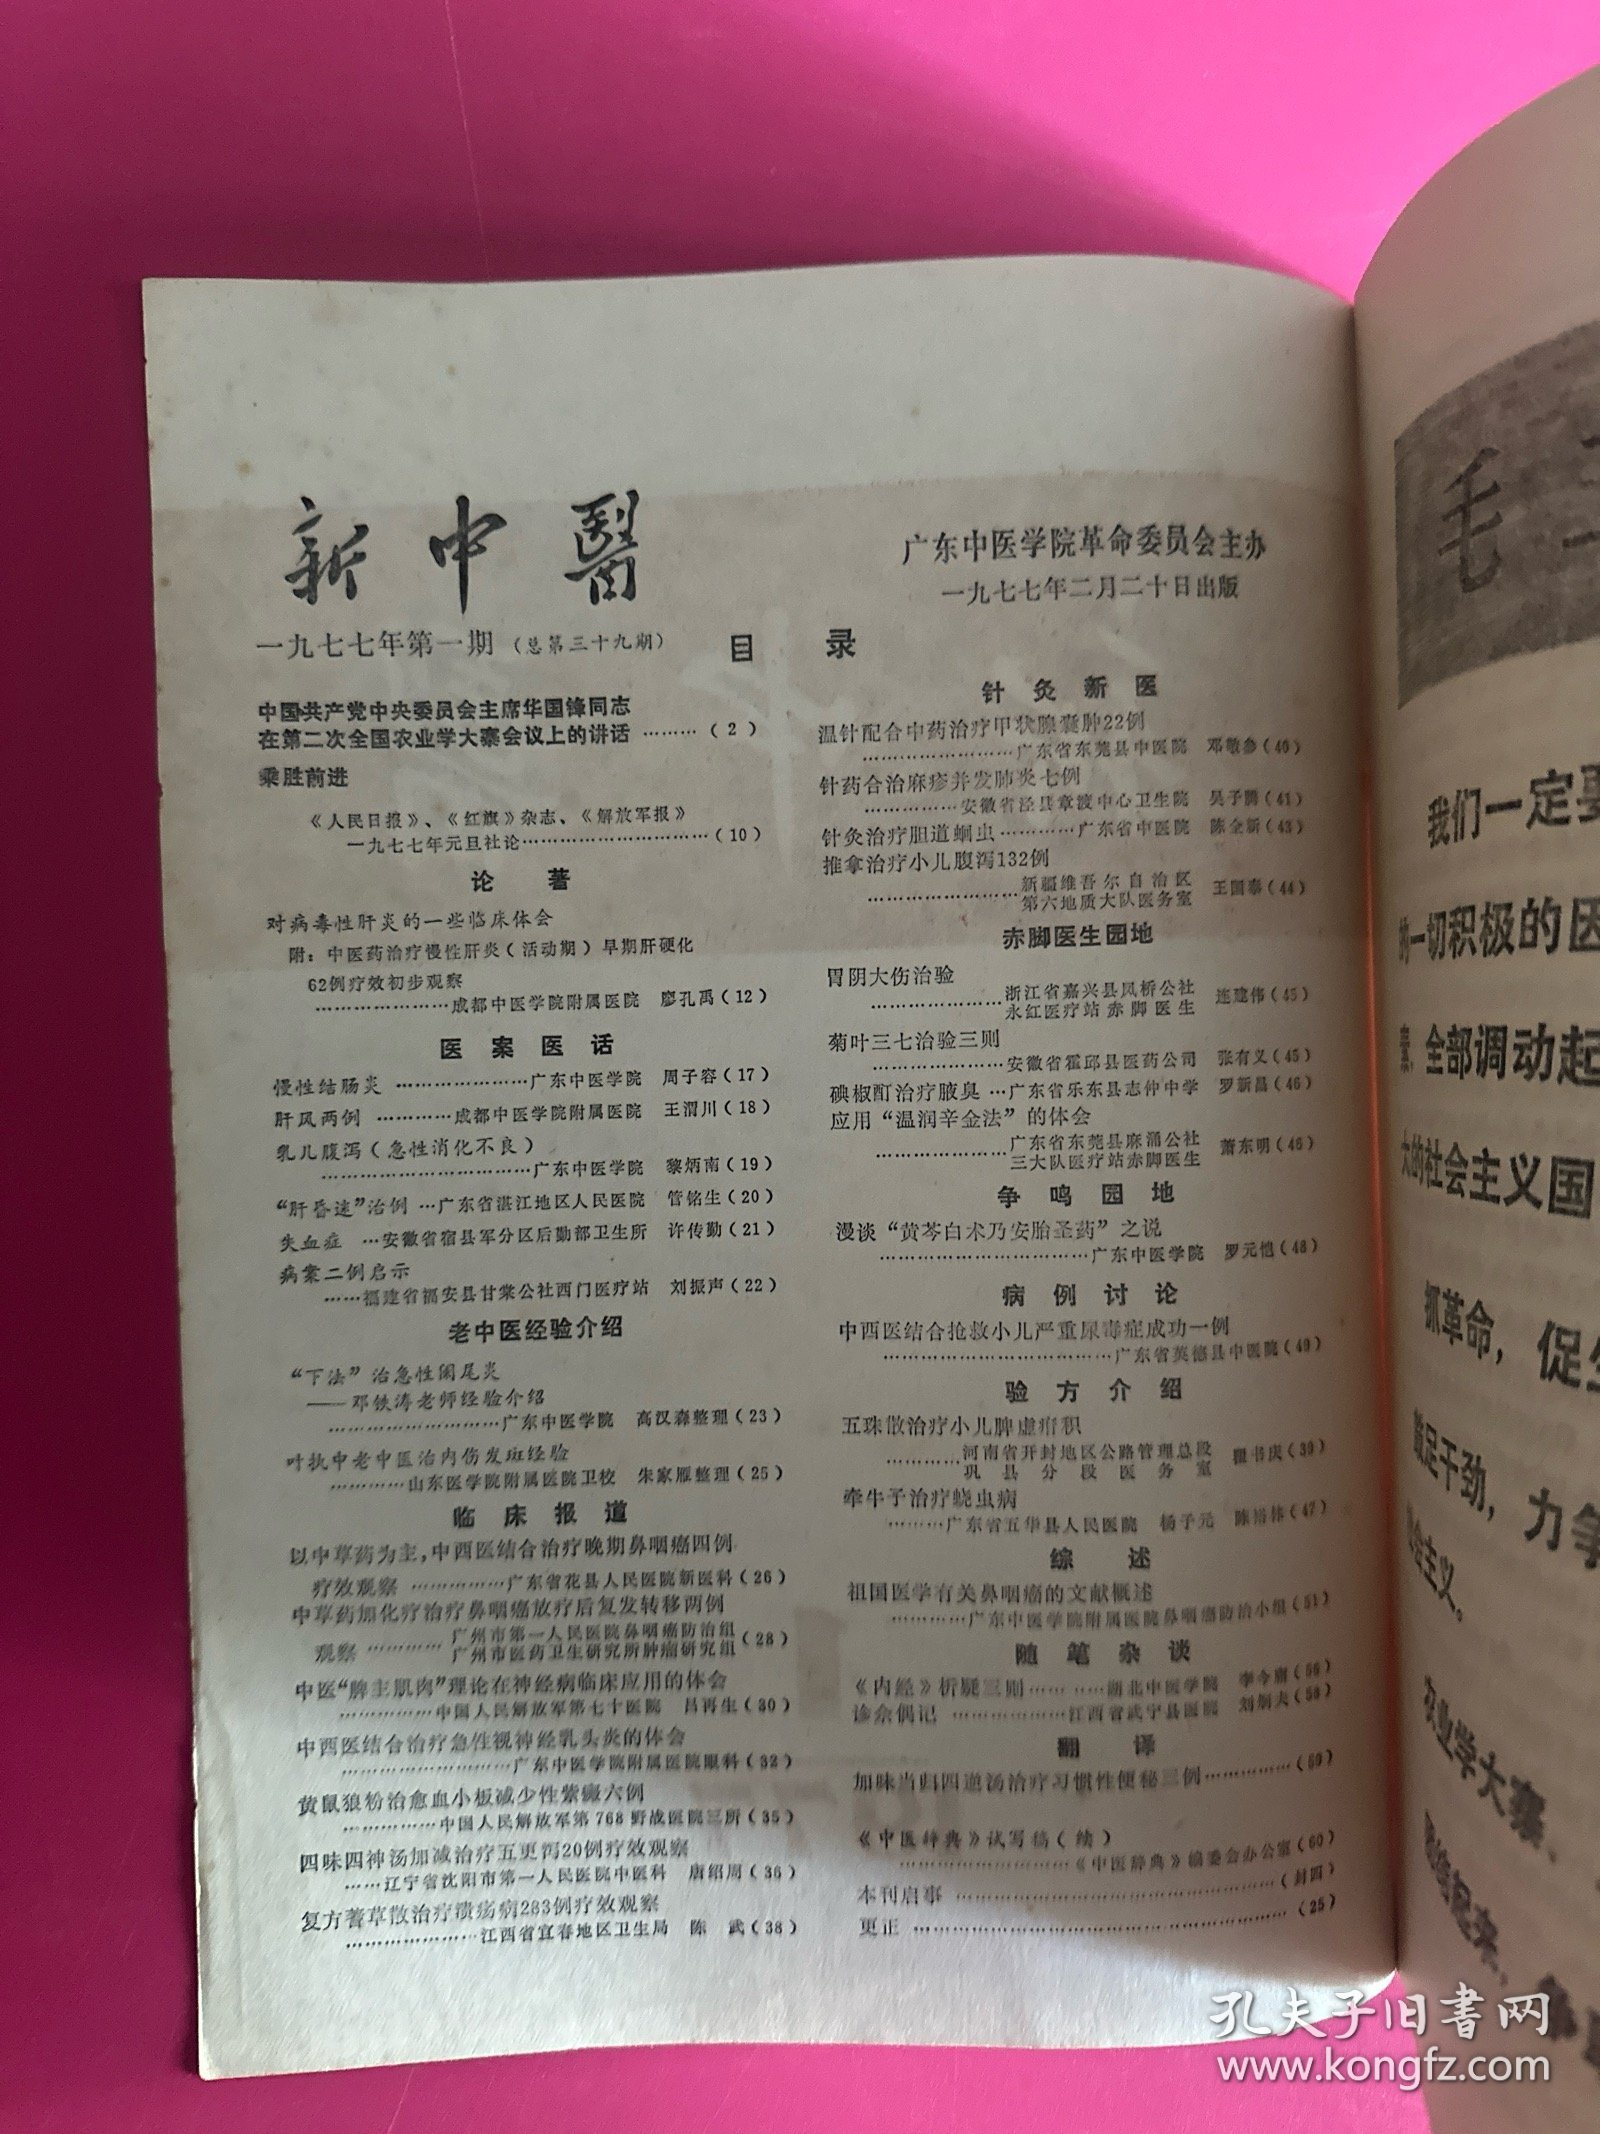 新中醫
一九七七年第一期（总第三十九期）
广东中医学院革命委员会主办
一九七七年二月二十日出版
目录
中国共产党中央委员会主席华国锋同志
在第二次全国农业学大寨会议上的讲话………（2）
乘胜前进
《人民日报》、《红旗》杂志、《解放军报》
一九七七年元旦社论……………………（10）
论著
对病毒性肝炎的一些临床体会
附：中医药治疗慢性肝炎（活动期）早期肝硬化
62例疗效初步观察
……………………成都中医学院附属医院 廖孔禹（12）
医案医话
慢性结肠炎……………………广东中医学院 周子容（17）
肝风两例…………成都中医学院附属医院 王渭川（18）
乳儿腹泻（急性消化不良）
……………………………广东中医学院 黎炳南（19）
“肝昏迷”治例…广东省湛江地区人民医院 管铭生（20）
失血症…安徽省宿县军分区后勤部卫生所 许传勤（21）
病案二例启示
……福建省福安县甘棠公社西门医疗站 刘振声（22）
老中医经验介绍
“下法”治急性阑尾炎
——邓铁涛老师经验介绍
………………………广东中医学院 高汉森整理（23）
叶执中老中医治内伤发斑经验
…………山东医学院附属医院卫校 朱家雁整理（25）
临床报道
以中草药为主，中西医结合治疗晚期鼻咽癌四例
疗效观察……………广东省花县人民医院新医科（26）
中草药加化疗治疗鼻咽癌放疗后复发转移两例
观察…………广州市第一人民医院鼻咽癌防治组
广州市医药卫生研究所肿瘤研究组（28）
中医“脾主肌肉”理论在神经病临床应用的体会
……………中国人民解放军第七十医院 吕再生（30）
中西医结合治疗急性视神经乳头炎的体会
…………………………广东中医学院附属医院眼科（32）
黄鼠狼粉治愈血小板减少性紫癜六例
……………中国人民解放军第768野战医院三所（35）
四味四神汤加减治疗五更泻20例疗效观察
……辽宁省沈阳市第一人民医院中医科 唐绍周（36）
复方蓍草散治疗溃疡病283例疗效观察
……………………江西省宜春地区卫生局 陈武（38）
针灸新医
温针配合中药治疗甲状腺囊肿22例
………………………广东省东莞县中医院 邓敬参（40）
针药合治麻疹并发肺炎七例
……………安徽省泾县章渡中心卫生院 吴子腾（41）
针灸治疗胆道蛔虫…………广东省中医院 陈全新（43）
推拿治疗小儿腹泻132例
………………………新疆维吾尔自治区
第六地质大队医务室 王国泰（44）
赤脚医生园地
胃阴大伤治验
……………………浙江省嘉兴县凤桥公社
永红医疗站赤脚医生 连建伟（45）
菊叶三七治验三则
……………………安徽省霍邱县医药公司 张有义（45）
碘椒酊治疗腋臭…广东省乐东县志仲中学 罗新昌（46）
应用“温润辛金法”的体会
……………………广东省东莞县麻涌公社
三大队医疗站赤脚医生 萧东明（46）
争鸣园地
漫谈“黄芩白术乃安胎圣药”之说
…………………………………广东中医学院 罗元恺（48）
病例讨论
中西医结合抢救小儿严重尿毒症成功一例
……………………………………广东省英德县中医院（49）
验方介绍
五珠散治疗小儿脾虚疳积
…………河南省开封地区公路管理总段
巩县分段医务室 瞿书庆（39）
牵牛子治疗蛲虫病
………广东省五华县人民医院 杨子元 陈裕林（47）
综述
祖国医学有关鼻咽癌的文献概述
……………广东中医学院附属医院鼻咽癌防治小组（51）
随笔杂谈
《内经》析疑三则…………湖北中医学院 李今庸（56）
诊余偶记………………江西省武宁县医院 刘炳夫（58）
翻译
加味当归四逆汤治疗习惯性便秘三例……………（59）
《中医辞典》试写稿（续）
……………………《中医辞典》编委会办公室（60）
本刊启事……………………………………………（封四）
更正…………………………………………………（25）
毛
我们一定要
的一切积极的因
素，全部调动起
大的社会主义国
抓革命，促生
鼓足干劲，力争
社会主义。
农业学大寨、
孔夫子旧書网
www.kongfz.com